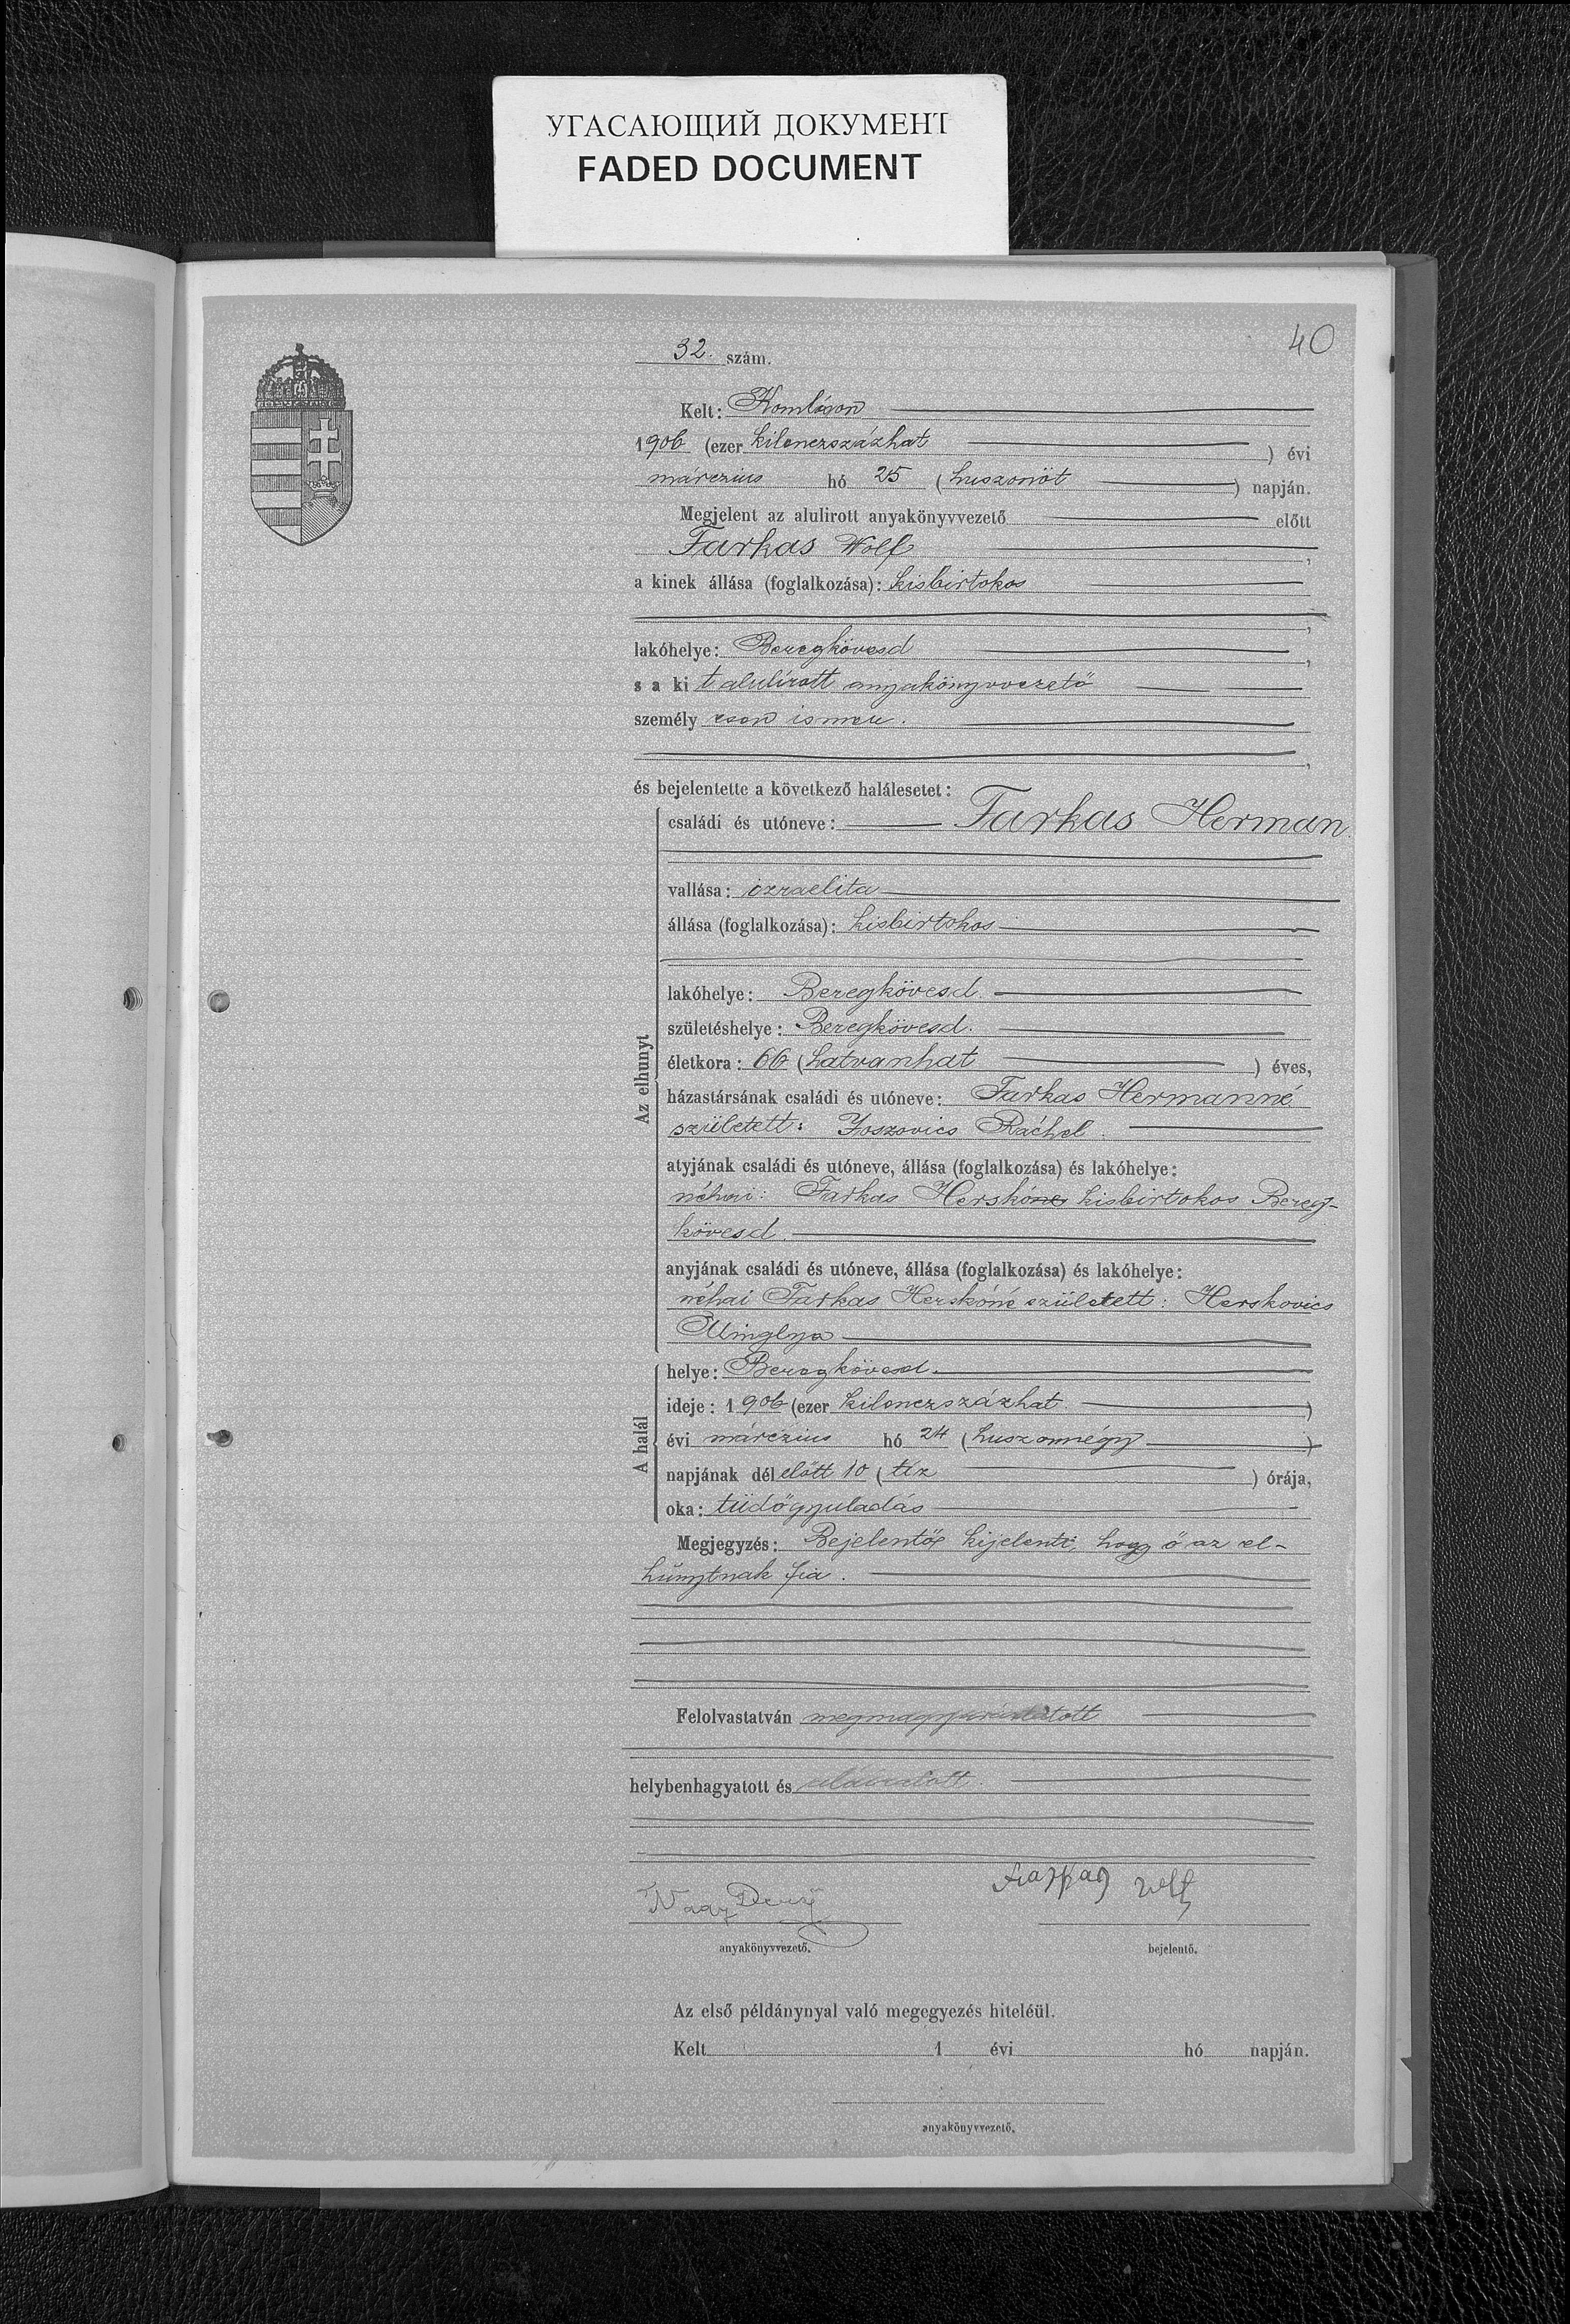 УГАСАЮЩИЙ ДОКУМЕНТ
FADED DOCUMENT
40
32. szám.
Kelt: Komlóson
1906 (ezer kilenczszázhat ) évi
márczius hó 25 (huszonöt ) napján.
Megjelent az alulirott anyakönyvvezető előtt
Farkas Wolf,
a kinek állása (foglalkozása): kisbirtokos
,
lakóhelye: Beregkövesd,
s a ki t alulírott anyakönyvvezető
személy esen ismer.
,
és bejelentette a következő halálesetet:
Az elhunyt
családi és utóneve: Farkas Herman.
vallása: izraelita
állása (foglalkozása): kisbirtokos
lakóhelye: Beregkövesd.
születéshelye: Beregkövesd.
életkora: 66 (hatvanhat ) éves,
házastársának családi és utóneve: Farkas Hermanné
született: Joszovics Ráchel.
atyjának családi és utóneve, állása (foglalkozása) és lakóhelye:
néhai: Farkas Herskóne kisbirtokos Bereg-
kövesd.
anyjának családi és utóneve, állása (foglalkozása) és lakóhelye:
néhai Farkas Herskóné született: Herskovics
Minglya
A halál
helye: Beregkövesd.
ideje: 1906 (ezer kilenczszázhat )
évi márczius hó 24 (huszonnégy )
napjának dél előtt 10 (tíz ) órája,
oka: tüdőgyuladás
Megjegyzés: Bejelentő kijelenti, hogy ő az el-
húnytnak fia.
Felolvastatván megmagyaráztatott
helybenhagyatott és aláiratott.
Nagy Dezső
Farkas Wolf
anyakönyvvezető. bejelentő.
Az első példánynyal való megegyezés hiteléül.
Kelt 1 évi hó napján.
anyakönyvvezető.